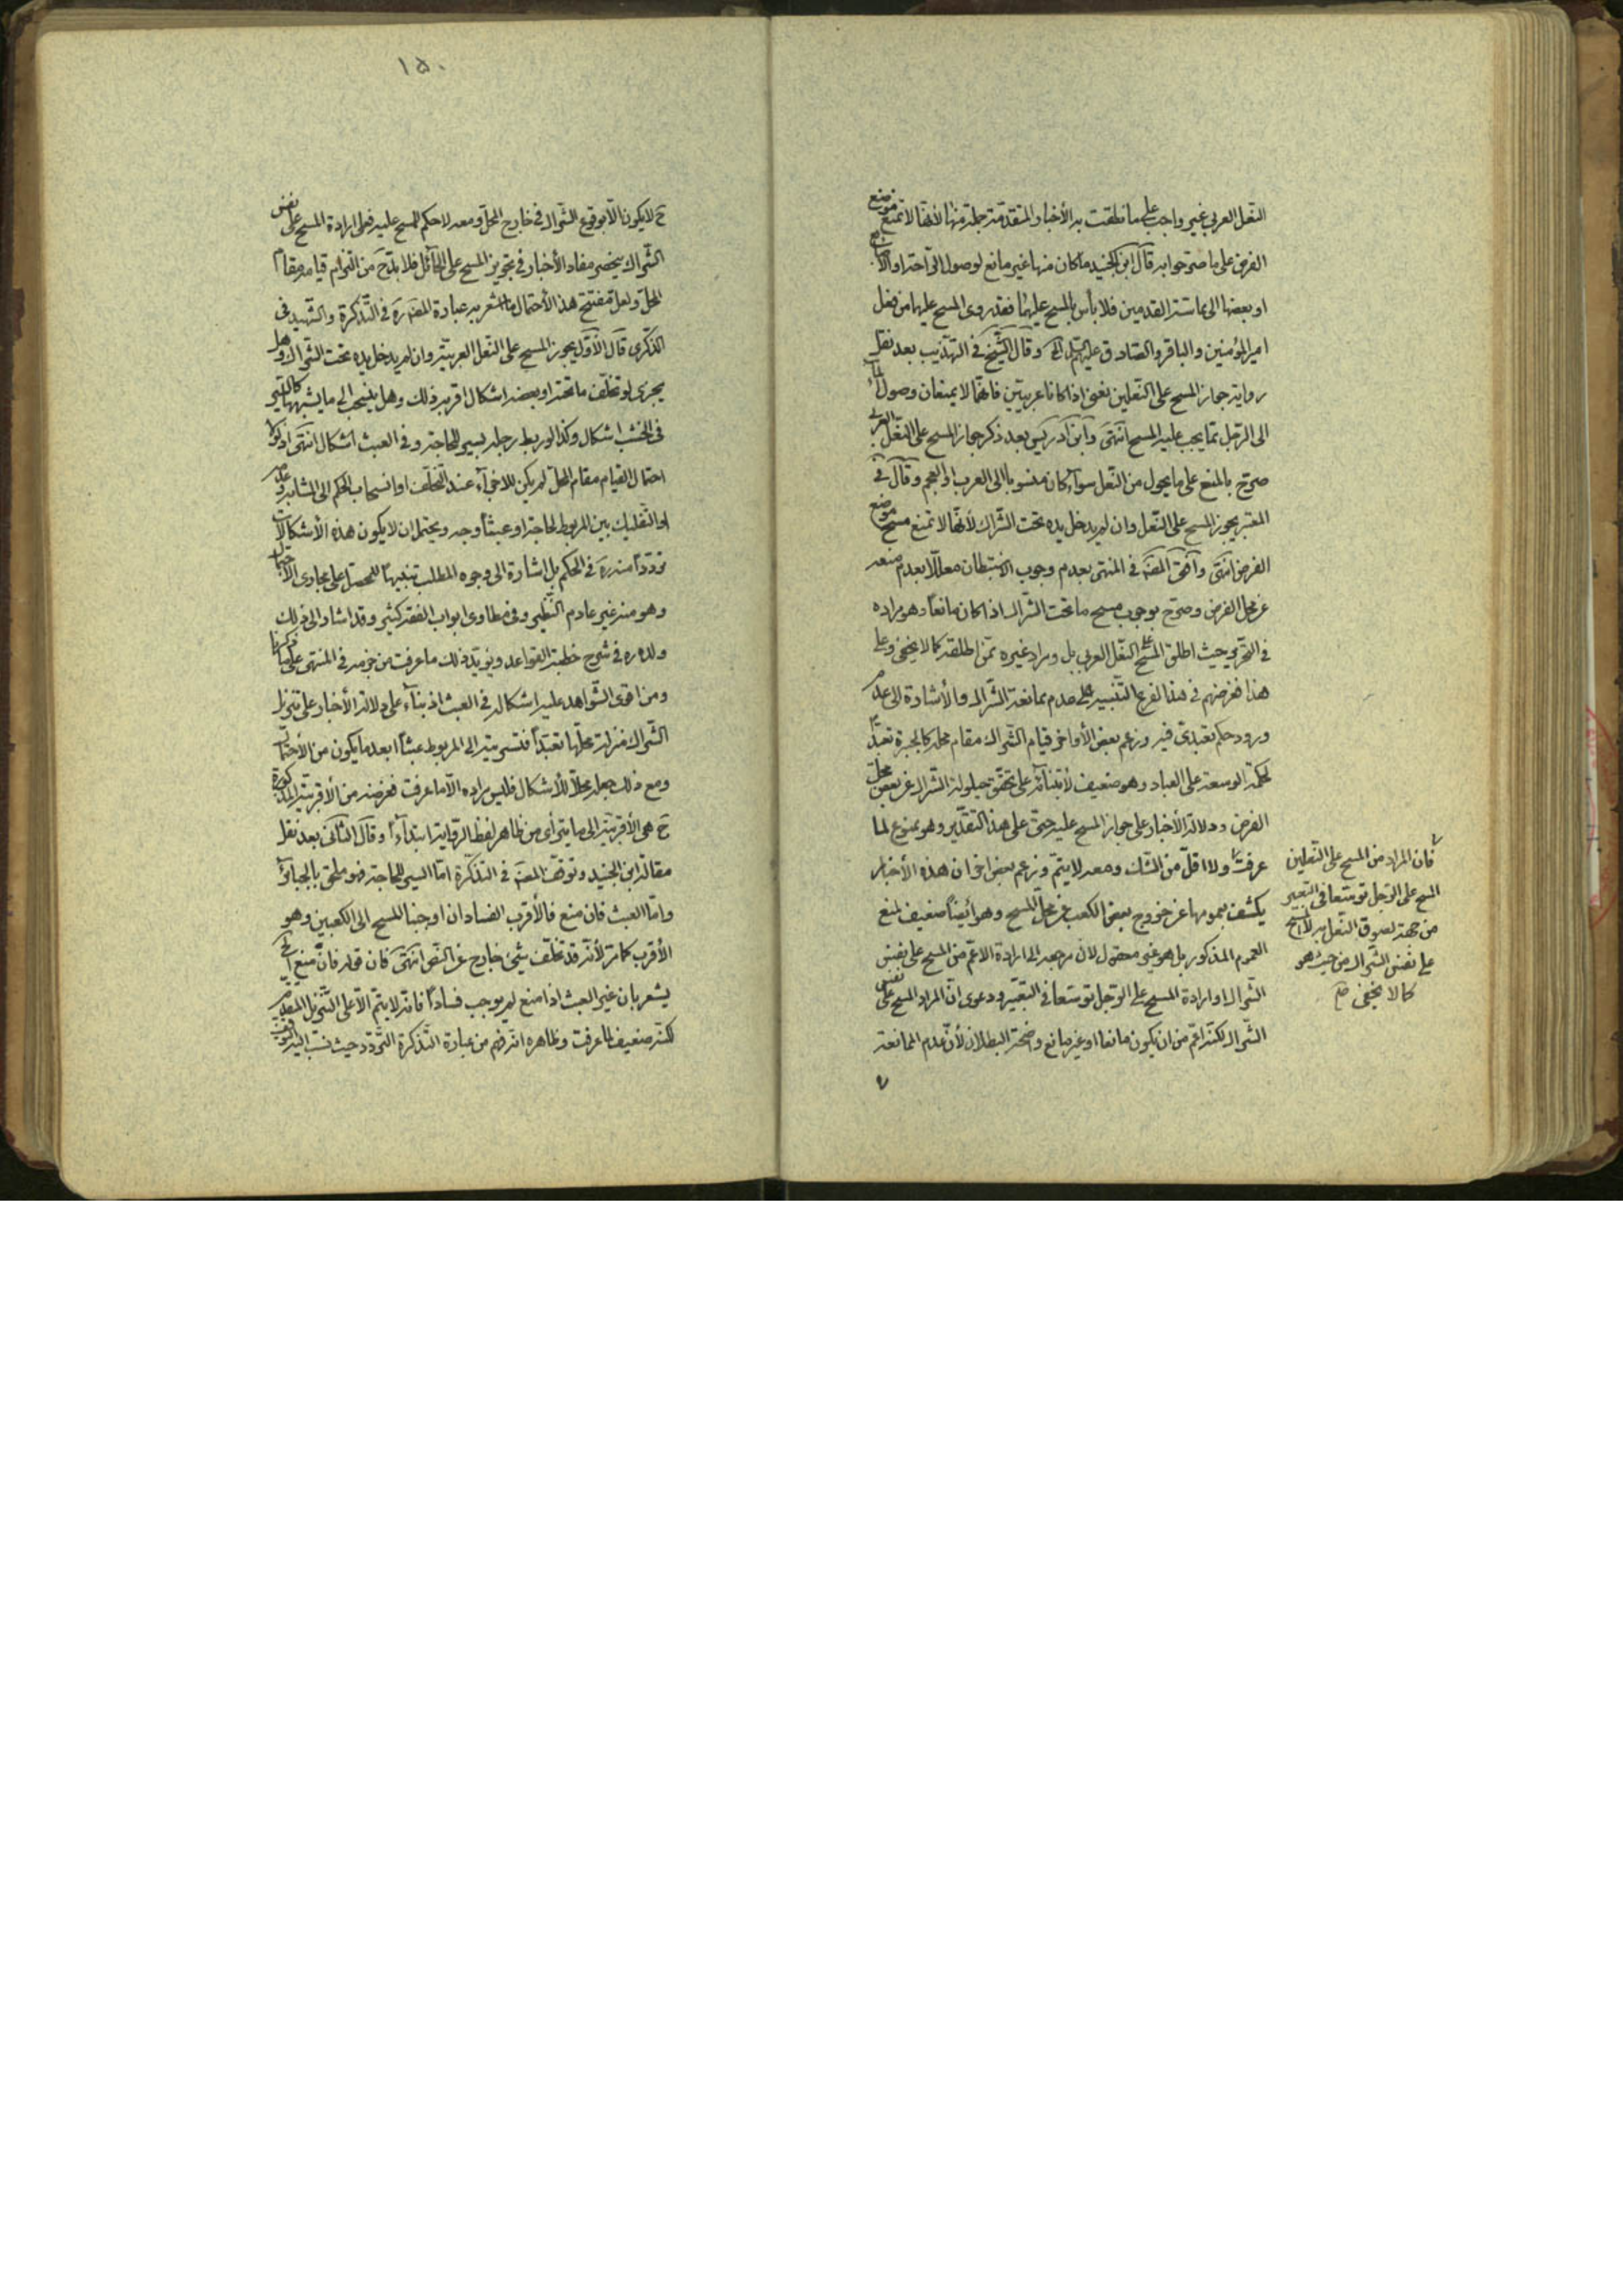 النعل العربي غير واجب على ما نطقت به الأخبار المتقدمة جملة منها لأنها لا تمنع موضع
الفرض على ما صرحوا به قال ابن الجنيد ما كان منها غير مانع لوصول الراحة او الأصابع
او بعضها الى مماسة القدمين فلا بأس بالمسح عليهما فقد روى المسح عليها من فعل
امير المؤمنين والباقر والصادق عليهم السلام الخ وقال الشيخ في التهذيب بعد نقل
رواية جواز المسح على النعلين نعني اذا كانا عربيتين فانهما لا يمنعان وصول الماء
الى الرجل مما يجب عليه المسح انتهى وابن ادريس بعد ذكر جواز المسح على النعل العربي
صرح بالمنع على ما يحول من النعل سوآء كان منسوبا الى العرب او العجم وقال في
المعتبر يجوز المسح على النعل وان لم يدخل يده تحت الشراك لأنها لا تمنع مسح موضع
الفرض انتهى وافتى المصنف في المنتهى بعدم وجوب الاستبطان معللا بعدم منعه
عن محل الفرض وصرح بوجوب مسح ما تحت الشراك اذا كان مانعاً وهو مراده
في التحرير حيث اطلق المسح على النعل العربي بل ومراد غيره ممن اطلقه كما لا يخفى وعلى
هذا فغرضهم في هذا الفرع التنبيه على عدم ممانعة الشراك والأشارة الى عدم
ورود حكم تعبدي فيه وزعم بعض الأواخر قيام الشراك مقام محله كالجبيرة تعبداً
لحكمة الوسعة على العباد وهو ضعيف لأبتنائه على تحقق حيلولة الشراك عن بعض محل
الفرض ودلالة الأخبار على جواز المسح عليه حتى على هذا التقدير وهو ممنوع لما
عرفت ولا اقل من الشك ومعه لا يتم وزعم بعض اخر ان هذه الأخبار
يكشف بعمومها عن خروج بعض الكعب عن محل المسح وهو أيضاً ضعيف لمنع
العموم المذكور بل هو غير معقول لان مرجعه الى ارادة الاعم من المسح على نفس
الشراك او ارادة المسح على الرجل توسعا في التعبير ودعوى ان المراد المسح على نفس
الشراك لكنه اعم من ان يكون مانعا او غير مانع واضحة البطلان لأن عدم الممانعة
فان المراد من المسح على النعلين
المسح على الرجل توسعا في التعبير
من جهة لصوق النعل به لا المسح
على نفس الشراك من حيث هو
كما لا يخفى صح
١٥٠
ح لا يكون الا بوقوع الشراك في خارج المحل ومعه لا حكم للمسح عليه فعلى ارادة المسح على نفس
الشراك ينحصر مفاد الأخبار في تجويز المسح على الحائل فلا بد ح من التزام قيامه مقام
المحل ولعل مفتتح هذا الأحتمال ما اشعر به عبارة المصنف ره في التذكرة والشهيد في
الذكرى قال الأول يجوز المسح على النعل العربية وان لم يدخل يده تحت الشراك وهل
يجزي لو تخلف ما تحته او بعضه اشكال اقربه ذلك وهل ينسحب الى ما يشبهها كالسير
في الخشب اشكال وكذا لو ربط رجله بسير للحاجة وفي العبث اشكال انتهى اذ لولا
احتمال القيام مقام المحل لم يكن للاجزآء عند التخلف او انسحاب الحكم الى المشابه وعدمه
او التفكيك بين المربوط لحاجة او عبثاً وجه ويحتمل ان لا يكون هذه الأشكالات
ترددًا منه ره في الحكم بل اشارة الى وجوه المطلب تنبيهاً للمحصل على مجاري الأحتمال
وهو منه غير عادم النظير وفي مطاوي ابواب الفقه كثير وقد اشار الى ذلك
ولده ره في شرح خطبة القواعد ويؤيد ذلك ما عرفت من جزمه في المنتهى على ما ذكرنا
ومن اقوى الشواهد عليه اشكاله في العبث اذ بنآء على دلالة الأخبار على تنزيل
الشراك منزلة محلها تعبداً فتسريته الى المربوط عبثاً ابعد ما يكون من الأحتمال
ومع ذلك جعله محلاً للأشكال فليس مراده الا ما عرفت فغرضه من الأقربية المذكورة
ح هي الأقربية الى ما يترأى من ظاهر لفظ الرواية ابتدآءاً وقال الثاني بعد نقل
مقالة ابن الجنيد وتوقف المصنف في التذكرة اما السير للحاجة فهو ملحق بالجبائر
واما العبث فان منع فالأقرب الفساد ان اوجبنا المسح الى الكعبين وهو
الأقرب كما مر لأنه قد تخلف شيئ خارج عن النص انتهى فان قوله فان منع الخ
يشعر بان غير العبث اذا منع لم يوجب فساداً فانه لا يتم الا على التنزيل المتقدم
لكنه ضعيف لما عرفت وظاهره انه فهم من عبارة التذكرة التردد حيث نسب اليه التوقف